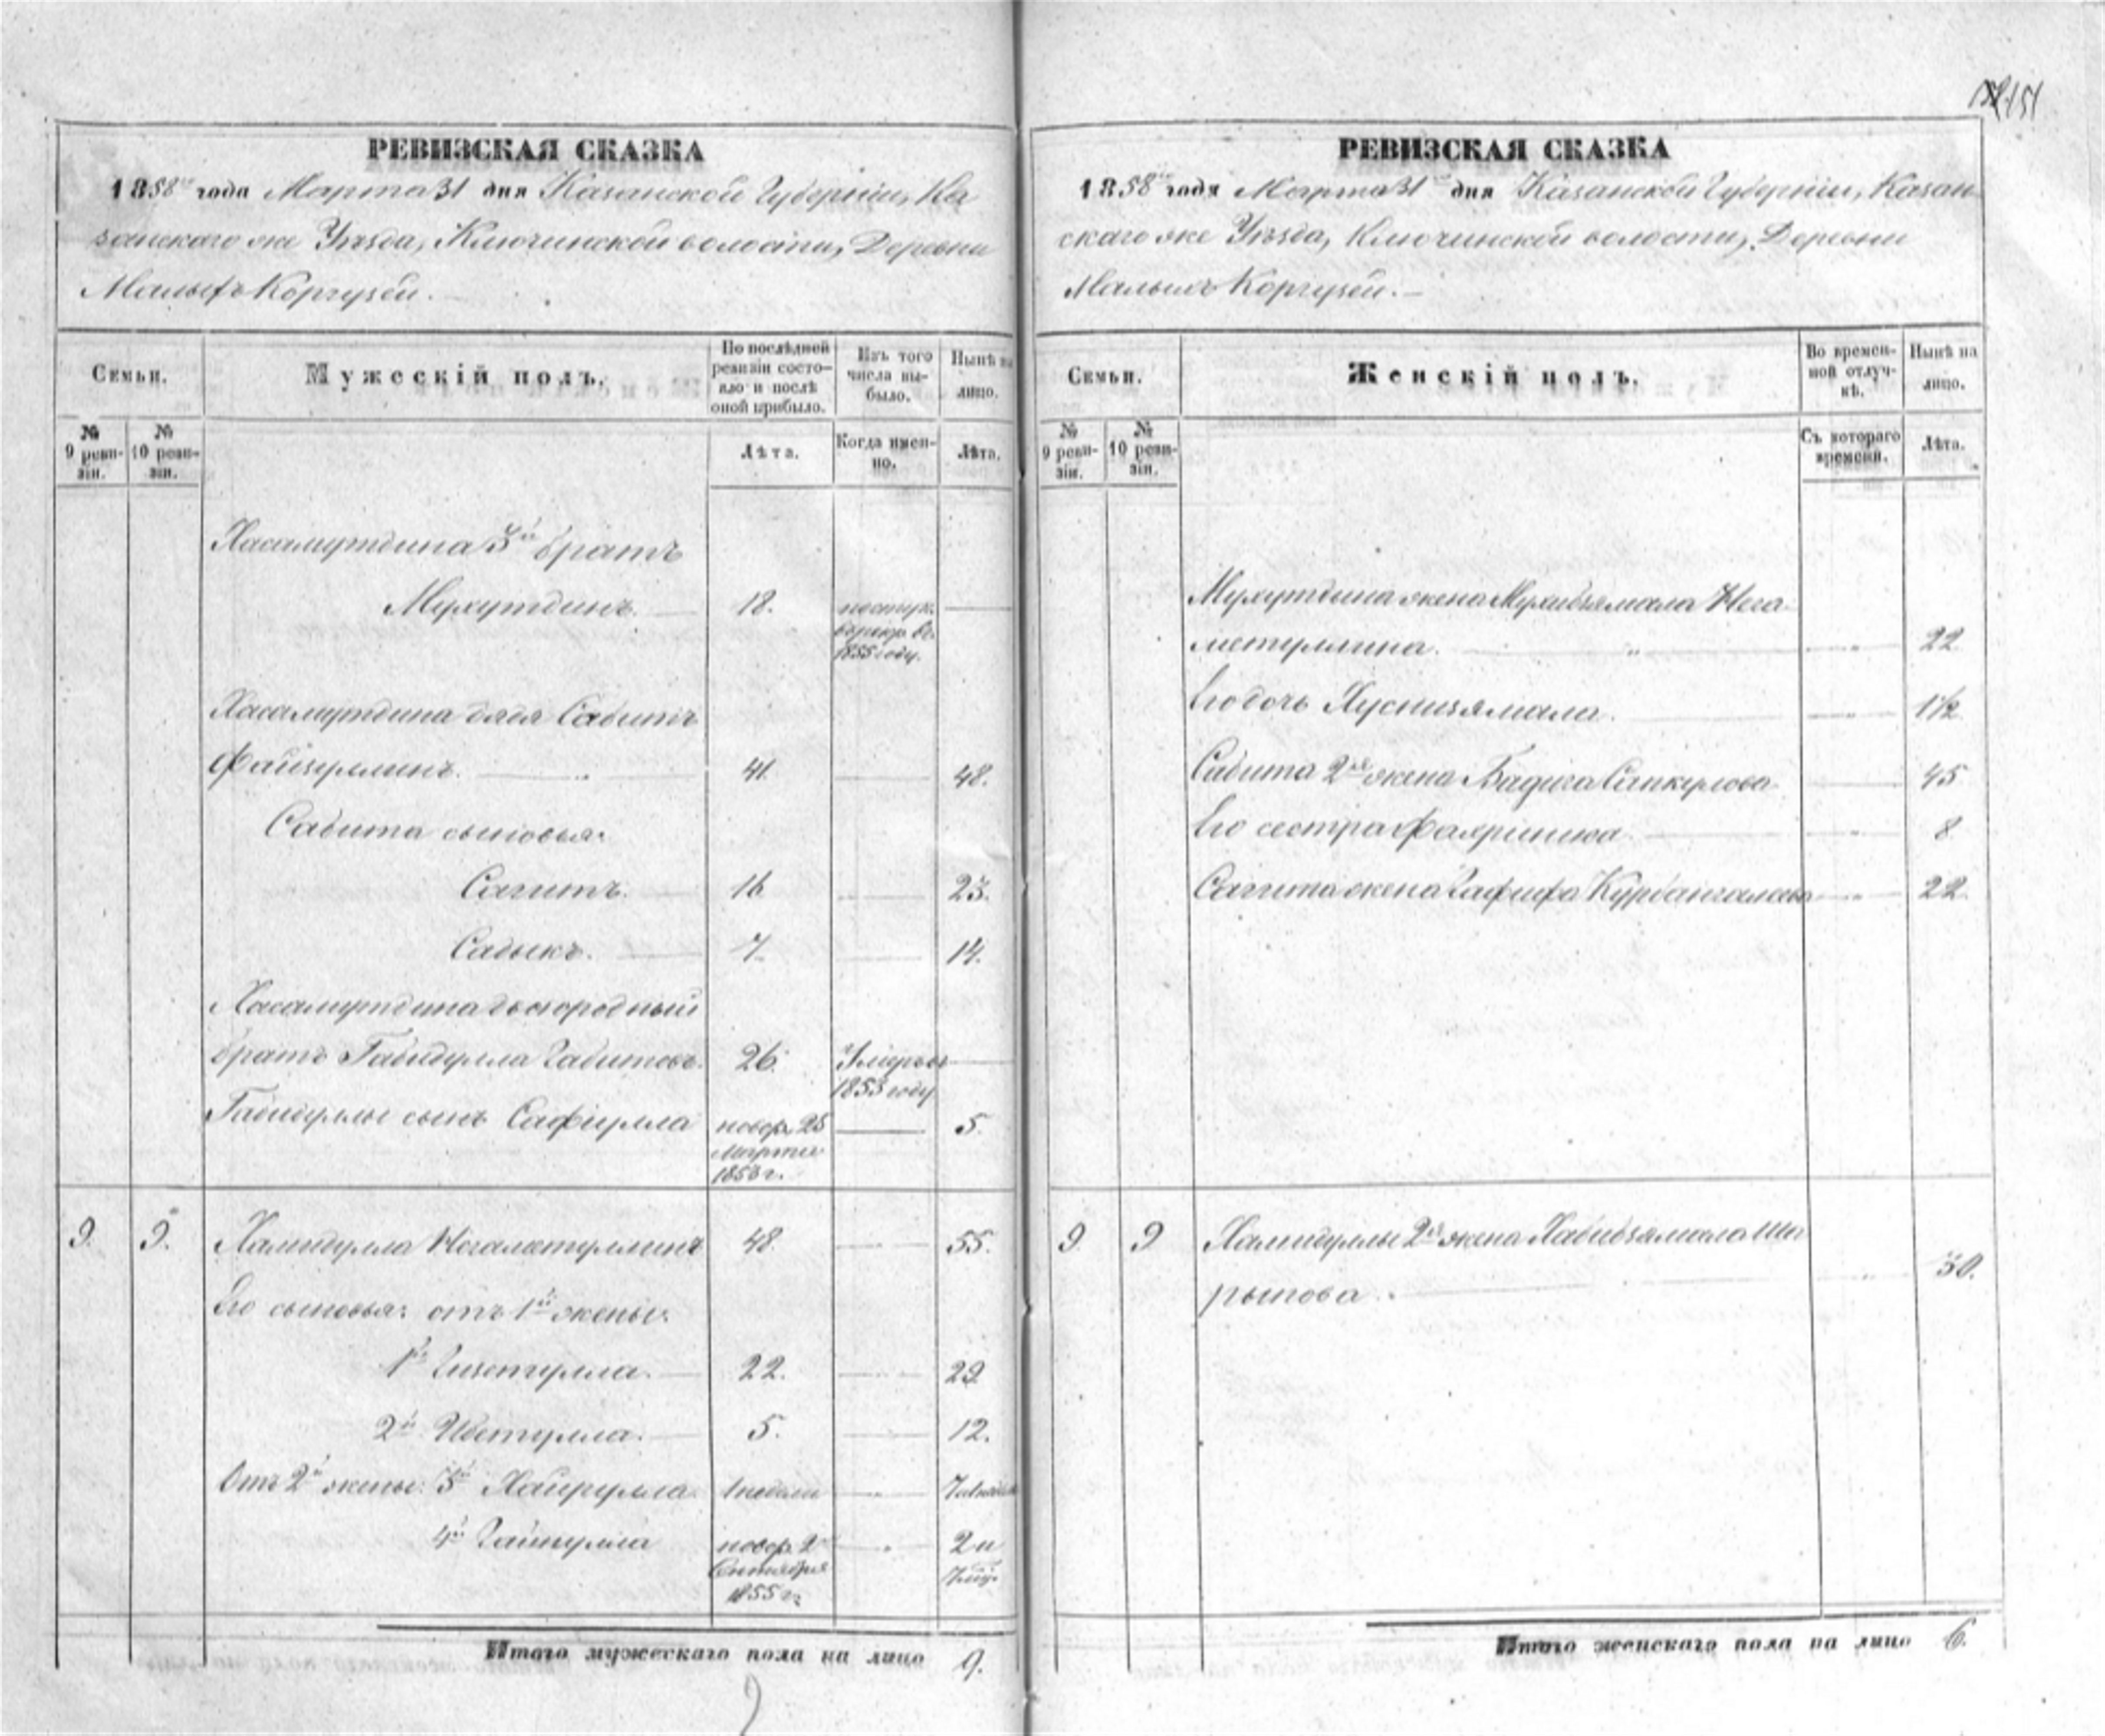 151
РЕВИЗСКАЯ СКАЗКА
1858го года Марта 31 дня Казанской Губерніи, Ка
занскаго же Уѣзда, Ключинской волости, Деревни
Малыхъ Коргузей.
Семьи.
Мужескій полъ.
По послѣдней ревизіи состояло и послѣ оной прибыло.
Изъ того числа выбыло.
Нынѣ на лицо.
№ 9 ревизіи.
№ 10 ревизіи.
Лѣта.
Когда именно.
Лѣта.
Хасамутдина 3й братъ
Мухутдинъ. 18. поступ. въ рекр. въ 1855 году.
Хасамутдина дядя Сабитъ
Файзуллинъ. 41 48.
Сабита сыновья:
Сагитъ. 16 23.
Садыкъ. 7. 14.
Хасамутдина двоюродный
братъ Габидулла Габитовъ. 26. Умеръ въ 1853 году
Габидуллы сынъ Сафіулла новор. 25 Марта 1853 г. 5.
9. 9. Хамидулла Негаметуллинъ 48. 55.
Его сыновья: отъ 1й жены:
1й Гизетулла. 22. 29
2й Изетулла. 5. 12.
Отъ 2й жены: 3й Хайрулла. 1 недели 7
4й Гайнулла новор. 2 Сентября 1855 г. 2 и 7 мѣс.
Итого мужескаго пола на лицо 9.
РЕВИЗСКАЯ СКАЗКА
1858го года Марта 31го дня Казанской Губерніи, Казан
скаго же Уѣзда, Ключинской волости, Деревни
Малыхъ Коргузей.
Семьи.
Женскій полъ.
Во временной отлучкѣ.
Нынѣ на лицо.
№ 9 ревизіи.
№ 10 ревизіи.
Съ котораго времени.
Лѣта.
Мухутдина жена Мухибзямала Нега
метуллина. 22
Его дочь Хуснизямала. 1 1/2
Сабита 2я жена Бадига Сапкулова 45
Его сестра Фахриниса 8
Сагита жена Гафифа Курбангалеева 22
9 9 Хамидуллы 2я жена Хабибзямала Ша
рыпова. 30.
Итого женскаго пола на лицо 6.